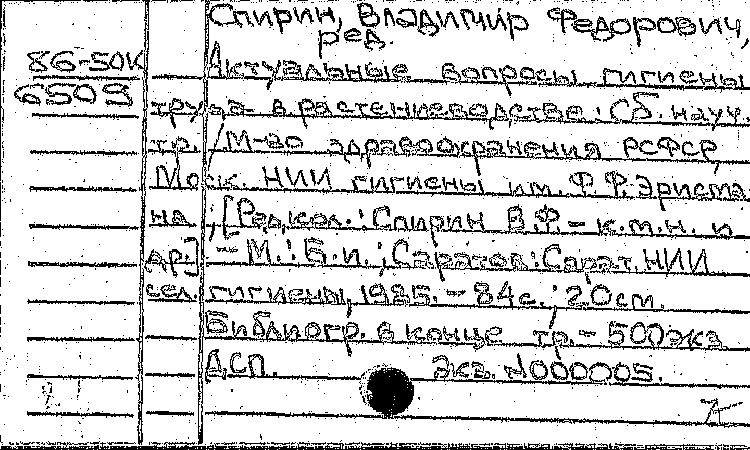 Спирин, Владимир Федорович,
ред.
86-50К
6509
Актуальные вопросы гигиены
труда в растениеводстве: Сб. науч.
тр. /М-во здравоохранения РСФСР,
Моск. НИИ гигиены им. Ф.Ф. Эрисма
на ; [Редкол.: Спирин В.Ф. - к.м.н. и
др.]. - М.: Б.и.; Саратов: Сарат. НИИ
сел. гигиены, 1985. - 84с.; 20см.
Библиогр. в конце тр. - 500экз
ДСП. Экз. N000005.